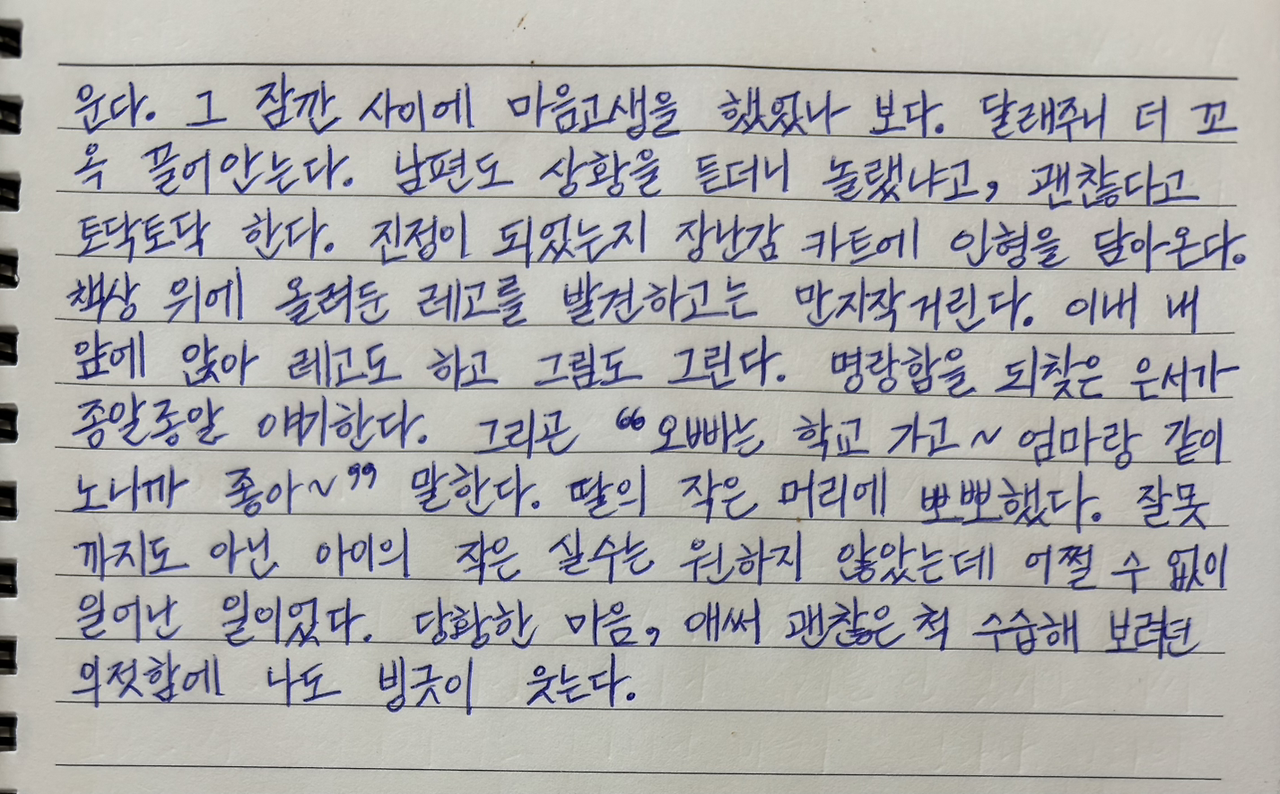 운다. 그 잠깐 사이에 마음고생을 했었나 보다. 달래주니 더 꼬
옥 끌어안는다. 남편도 상황을 듣더니 놀랬냐고, 괜찮다고
토닥토닥 한다. 진정이 되었는지 장난감 카트에 인형을 담아온다.
책상 위에 올려둔 레고를 발견하고는 만지작거린다. 이내 내
앞에 앉아 레고도 하고 그림도 그린다. 명랑함을 되찾은 은서가
종알종알 얘기한다. 그리곤 “오빠는 학교 가고~ 엄마랑 같이
노니까 좋아~” 말한다. 딸의 작은 머리에 뽀뽀했다. 잘못
까지도 아닌 아이의 작은 실수는 원하지 않았는데 어쩔 수 없이
일어난 일이었다. 당황한 마음, 애써 괜찮은 척 수습해 보려던
의젓함에 나도 빙긋이 웃는다.